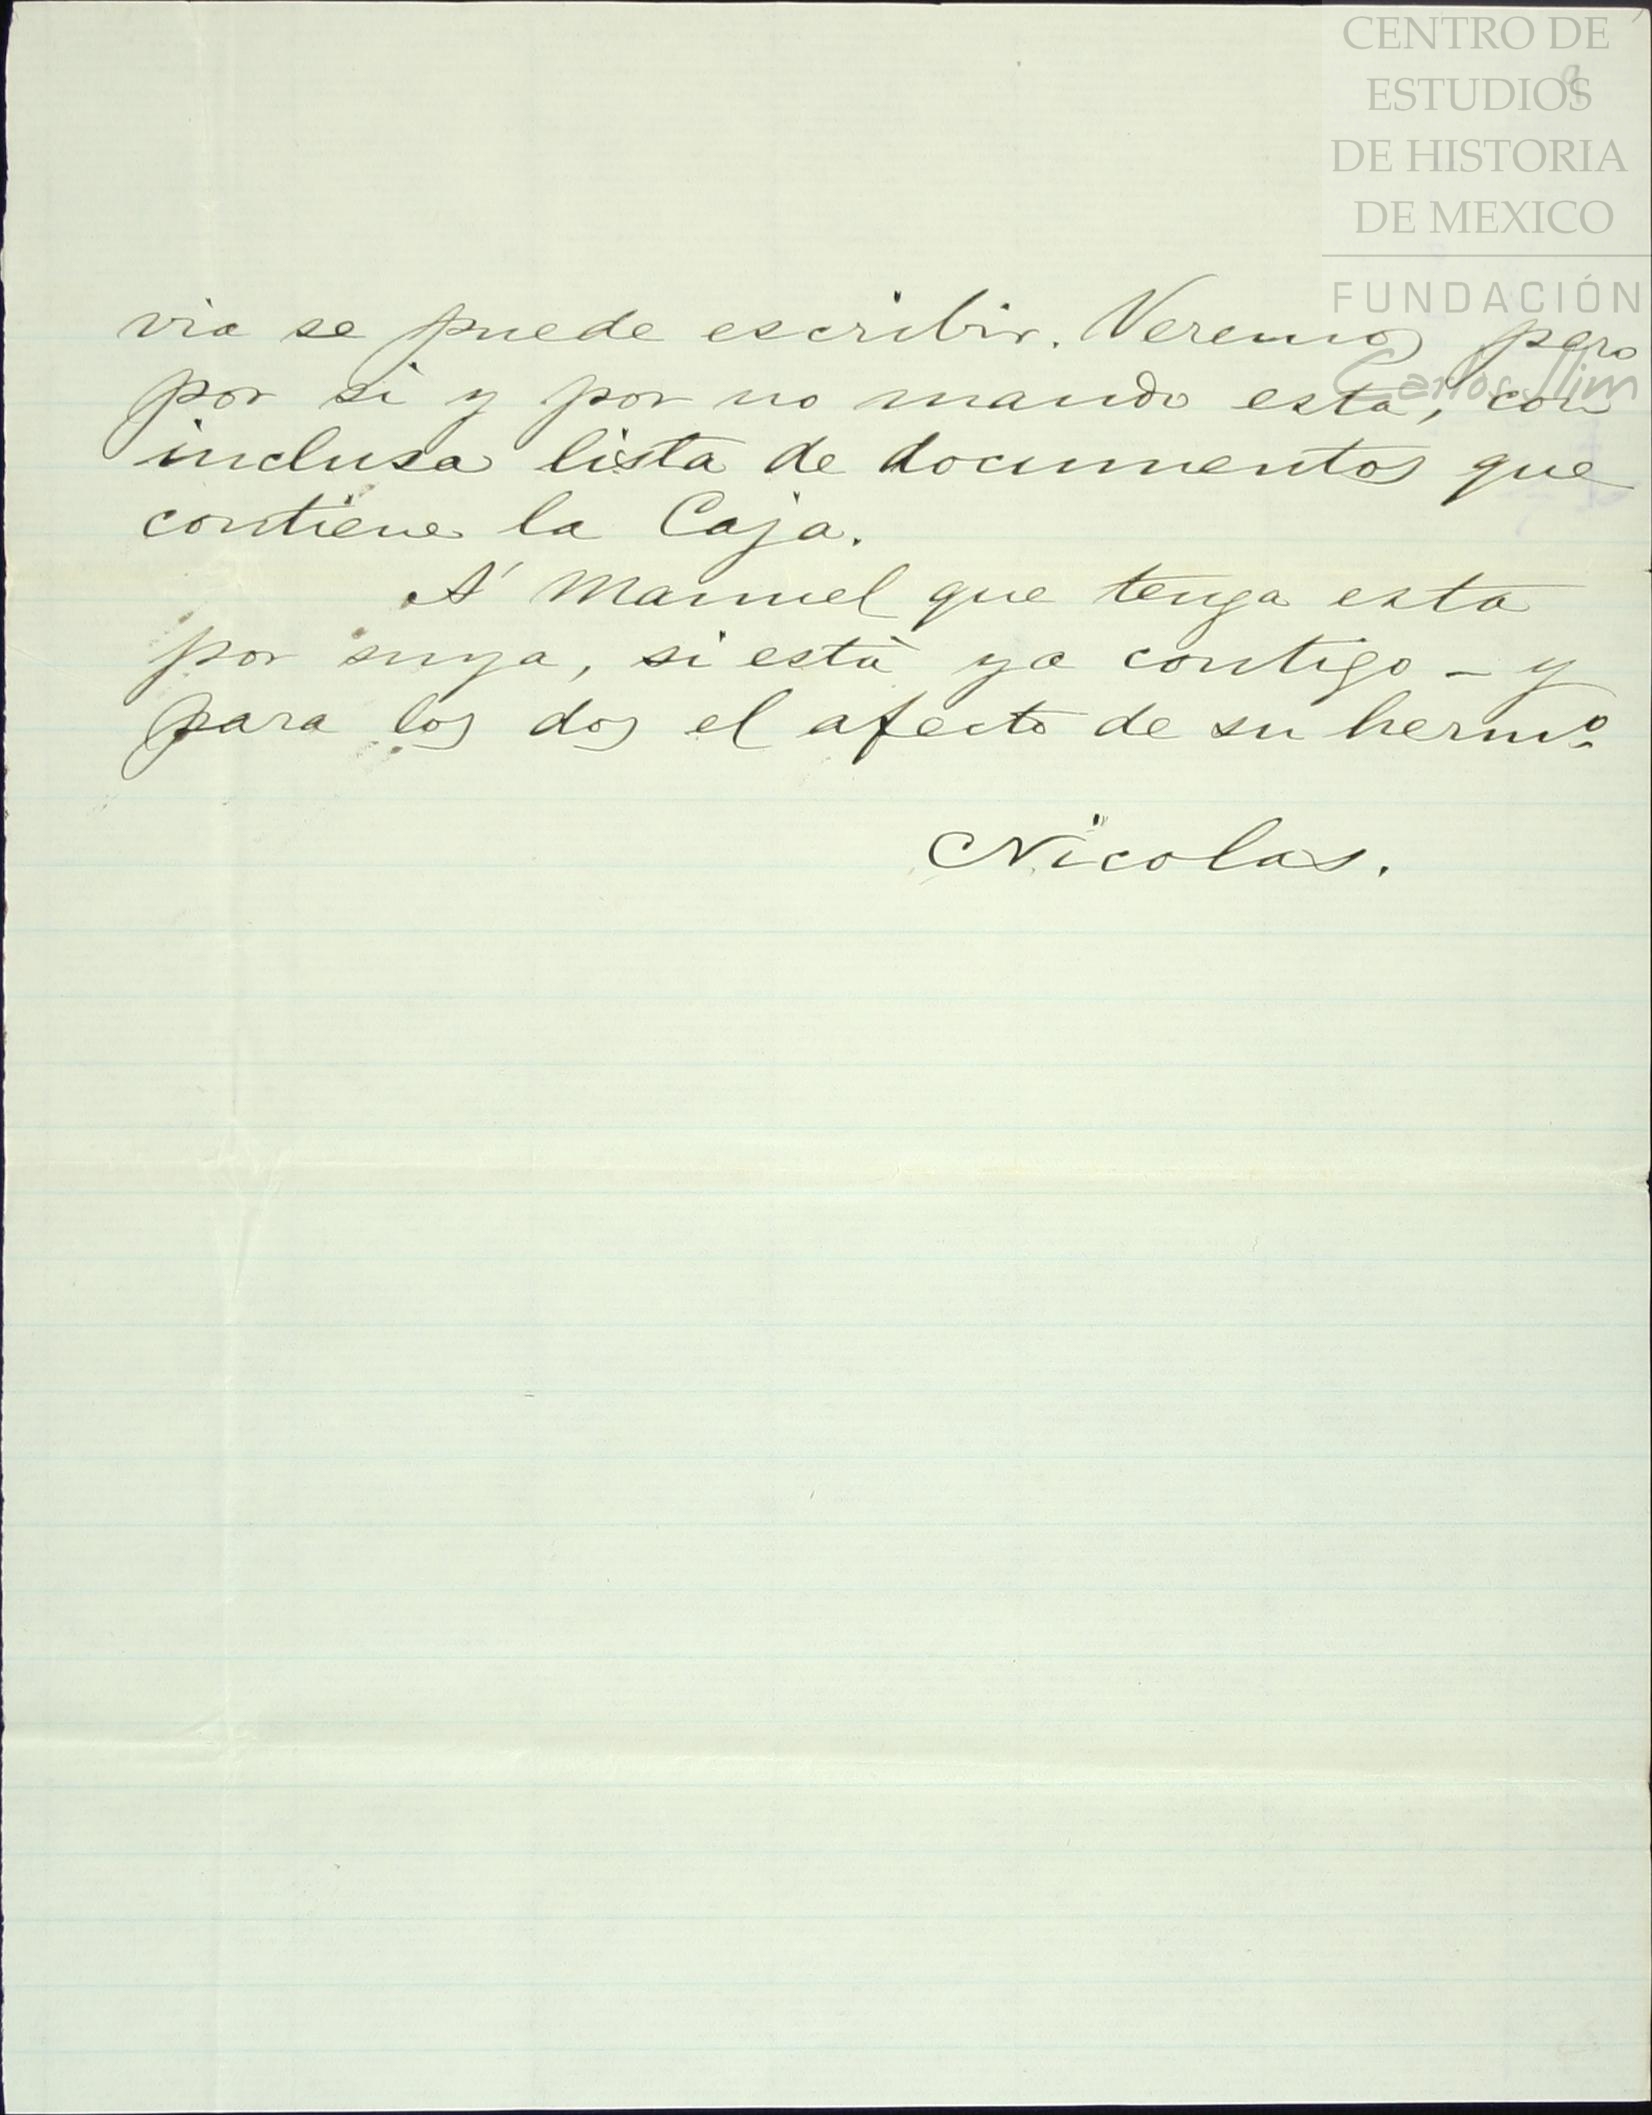 CENTRO DE
ESTUDIOS
DE HISTORIA
DE MEXICO
FUNDACIÓN
Carlos Slim
via se puede escribir. Veremos pero
por si y por no mando esta, con
inclusa lista de documentos que
contiene la Caja.
Á Manuel que tenga esta
por suya, si está ya contigo - y
para los dos el afecto de su hermº
Nicolas.